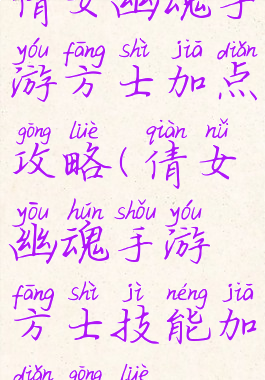 倩女幽魂手
yóu fāng shì jiā diǎn
游方士加点
gōng lüè qiàn nǚ
攻略(倩女
yōu hún shǒu yóu
幽魂手游
fāng shì jì néng jiā
方士技能加
diǎn gōng lüè